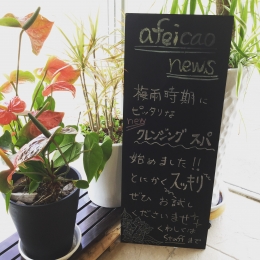 afeicao
news
梅雨時期に
ピッタリな
new
クレンジングスパ
始めました!!
とにかくスッキリ
ぜひお試し
ください
くわしくは
staffまで